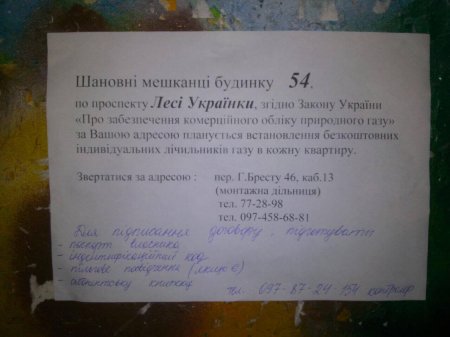 Шановні мешканці будинку 54,
по проспекту Лесі Українки, згідно Закону України
«Про забезпечення комерційного обліку природного газу»
за Вашою адресою планується встановлення безкоштовних
індивідуальних лічильників газу в кожну квартиру.
Звертатися за адресою : пер. Г.Бресту 46, каб.13
(монтажна дільниця)
тел. 77-28-98
тел. 097-458-68-81
Для підписання договору : підготувати
- паспорт власника
- ідентифікаційний код
- пільгове посвідчення (якщо є)
- абонентську книжку
тел. 097-87-24 154 контролер